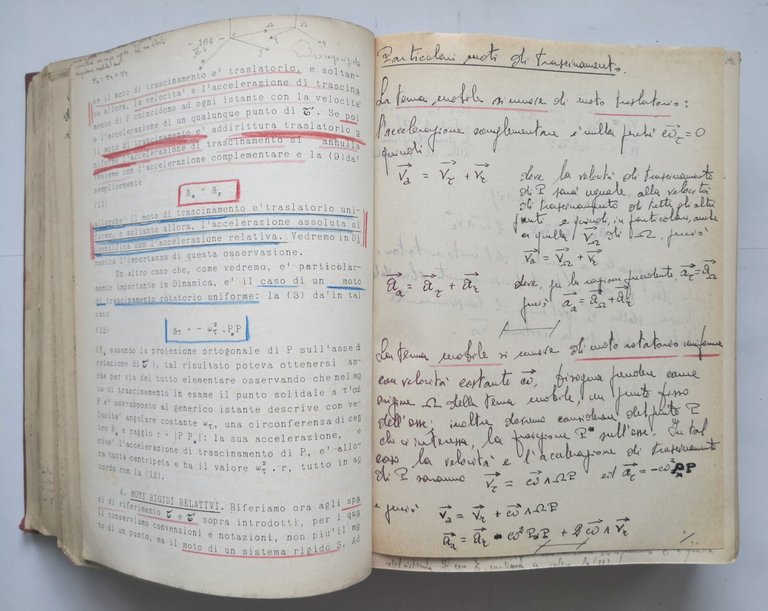 - 164 -
te il moto di trascinamento e' traslatorio, e soltan-
to allora, la velocita' e l'accelerazione di trascina
mento di P coincidono ad ogni istante con la velocita'
e l'accelerazione di un qualunque punto di τ. Se poi
il moto di trascinamento e' addirittura traslatorio u
niforme l'accelerazione di trascinamento si annulla
insieme con l'accelerazione complementare e la (9)da'
semplicemente
(11) a_a = a_r
allorche' il moto di trascinamento e'traslatorio uni-
forme, e soltanto allora, l'accelerazione assoluta si
identifica con l'accelerazione relativa. Vedremo in Di
namica l'importanza di questa osservazione.
Un altro caso che, come vedremo, e' particolar-
mente importante in Dinamica, e' il caso di un moto
di trascinamento rotatorio uniforme: la (3) da'in tal
caso
(12) a_τ = - ω²_τ . P_*P
P_* essendo la proiezione ortogonale di P sull'asse di
rotazione di τ; tal risultato poteva ottenersi an-
che per via del tutto elementare osservando che nel mo
to di trascinamento in esame il punto solidale a τ
P e' sovrapposto al generico istante descrive con ve-
locita' angolare costante ω_τ, una circonferenza di cen
tro P_* e raggio r = |P P_*|: la sua accelerazione, e
cioe' l'accelerazione di trascinamento di P, e' allo-
ra tutta centripeta e ha il valore ω²_τ. r, tutto in ac
cordo con la (12).
4. MOTI RIGIDI RELATIVI. Riferiamo ora agli spa
zi di riferimento τ e τ sopra introdotti, per i qua
li conserviamo convenzioni e notazioni, non piu'il mo
to di un punto, ma il moto di un sistema rigido S. Ad
Particolari moti di trascinamento.
La terna mobile si muove di moto traslatorio:
l'accelerazione complementare è nulla perché ω_τ = 0
quindi:
v_a = v_τ + v_r
dove la velocità di trascinamento
di P sarà uguale alla velocità
di trascinamento di tutti gli altri
punti e quindi, in particolare, anche
a quella v_Ω di Ω, perciò
v_a = v_Ω + v_r
a_a = a_τ + a_r
dove, per la ragione precedente, a_τ = a_Ω
perciò a_a = a_Ω + a_r
La terna mobile si muove di moto rotatorio uniforme
con velocità costante ω, bisogna prendere come
origine Ω della terna mobile, un punto fisso
dell'asse; inoltre dovremo considerare del punto P
che ci interessa, la proiezione P* sull'asse. In tal
caso la velocità e l'accelerazione di trascinamento
di P saranno v_τ = ω ∧ ΩP ed a_τ = -ω² P_*P
e perciò v_a = v_r + ω ∧ ΩP
a_a = a_r - ω² P_*P + 2 ω ∧ v_r